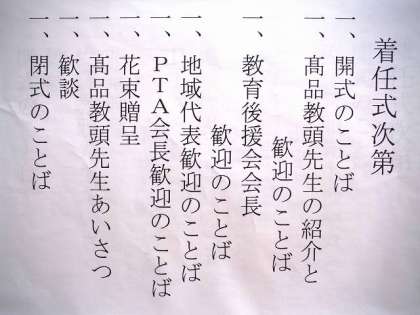 着任式次第
一、開式のことば
一、髙品教頭先生の紹介と
歓迎のことば
一、教育後援会会長
歓迎のことば
一、地域代表歓迎のことば
一、PTA会長歓迎のことば
一、花束贈呈
一、髙品教頭先生あいさつ
一、歓談
一、閉式のことば